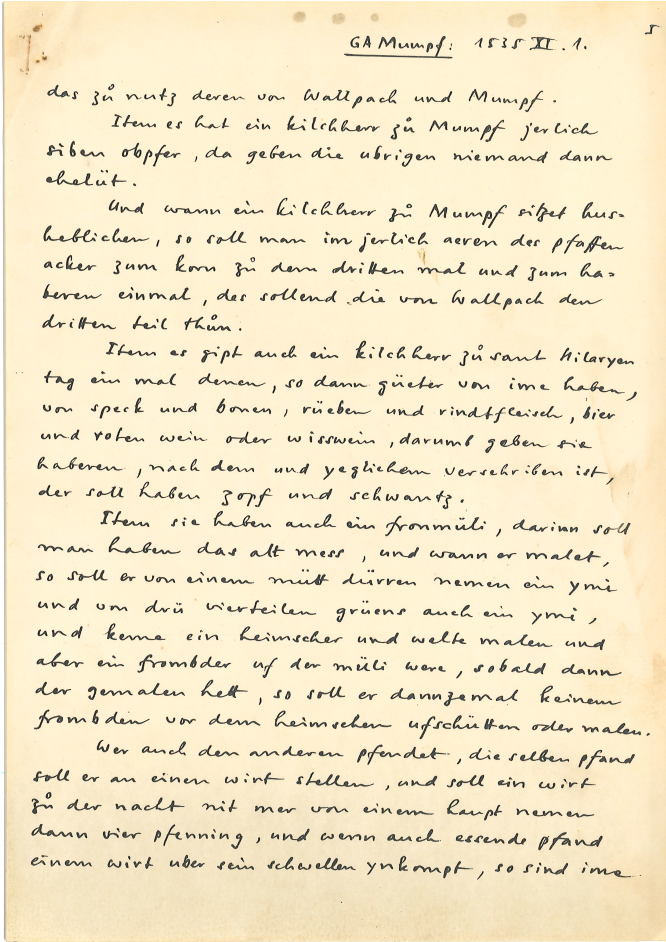 5
GA Mumpf: 1535 XI. 1.
das zů nutz deren von Wallpach und Mumpf.
Item es hat ein kilchherr zů Mumpf jerlich
siben obpfer, da geben die ubrigen niemand dann
ehelüt.
Und wann ein kilchherr zů Mumpf sitzet hus=
heblichen, so soll man im jerlich aeren des pfaffen
acker zum korn zů dem dritten mal und zum ha=
beren einmal, des sollend die von Wallpach den
dritten teil thůn.
Item es gipt auch ein kilchherr zů sant Hilaryen
tag ein mal denen, so dann güeter von ime haben,
von speck und bonen, rüeben und rindtfleisch, bier
und roten wein oder wisswein, darumb geben sie
haberen, nach dem und yeglichem verschriben ist,
der soll haben zopf und schwantz.
Item sie haben auch ein fronmüli, darinn soll
man haben das alt mess, und wann er malet,
so soll er von einem mütt dürren nemen ein ymi
und von drü vierteilen grüens auch ein ymi,
und keme ein heimscher und welte malen und
aber ein frombder uf der müli were, sobald dann
der gemalen hett, so soll er dannzemal keinem
frombden vor dem heimschen ufschütten oder malen.
Wer auch den anderen pfendet, die selben pfand
soll er an einen wirt stellen, und soll ein wirt
zů der nacht nit mer von einem haupt nemen
dann vier pfenning, und wenn auch essende pfand
einem wirt uber sein schwellen ynkompt, so sind ime